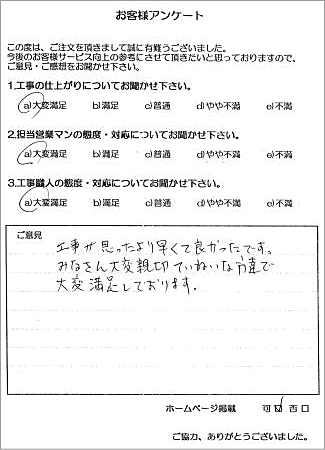 お客様アンケート
この度は、ご注文を頂きまして誠に有難うございました。
今後のお客様サービス向上の参考にさせて頂きたいと思っておりますので、
ご意見・ご感想をお聞かせ下さい。
1.工事の仕上がりについてお聞かせ下さい。
a)大変満足 b)満足 c)普通 d)やや不満 e)不満
2.担当営業マンの態度・対応についてお聞かせ下さい。
a)大変満足 b)満足 c)普通 d)やや不満 e)不満
3.工事職人の態度・対応についてお聞かせ下さい。
a)大変満足 b)満足 c)普通 d)やや不満 e)不満
ご意見
工事が思ったより早くて良かったです。
みなさん大変親切ていねいな方達で
大変満足しております。
ホームページ掲載 可☑ 否口
ご協力、ありがとうございました。